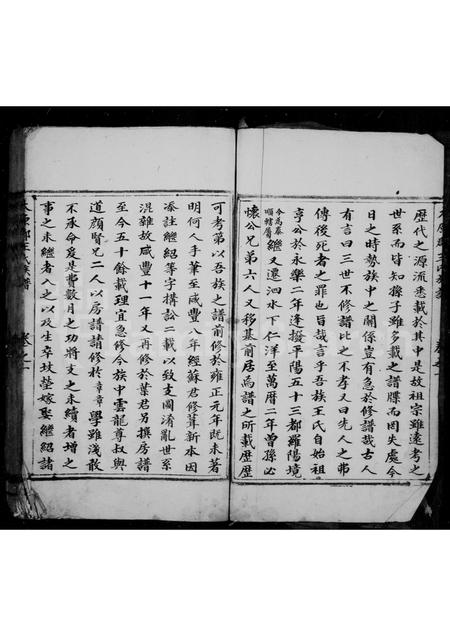 歷代之源流悉載於其中是故祖宗雖遠考之
世系而皆知孫子雖多載之譜牒而因失處今
日之時勢族中之關係豈有急於修譜哉古人
有言曰三世不修譜比之不孝又曰先人之弗
傳後死者之罪也旨哉言乎吾族王氏自始祖
亨公於永樂二年逢撥平陽五十三都羅陽境
今為泰順轄屬繼又遷泗水下仁洋至萬曆二年曾孫必
懷公兄弟六人又移墓前居焉譜之所載歷歷
可考第以吾族之譜前修於雍正元年既未著
明何人手筆至咸豐八年經蘇君修葺新本因
湊註繼紹等字搆訟二載以致支圖淆亂世系
混雜故咸豐十一年又再修於葉君另撰房譜
至今五十餘載理宜急修今族中雲龍尊叔與
道顏賢兄二人以房譜請修於章章學雖淺散
不承命爰是費數月之功將支之未續者增之
事之未繼者入之以及生卒坟塋嫁娶繼紹諸
太原郡王氏族譜
卷之一